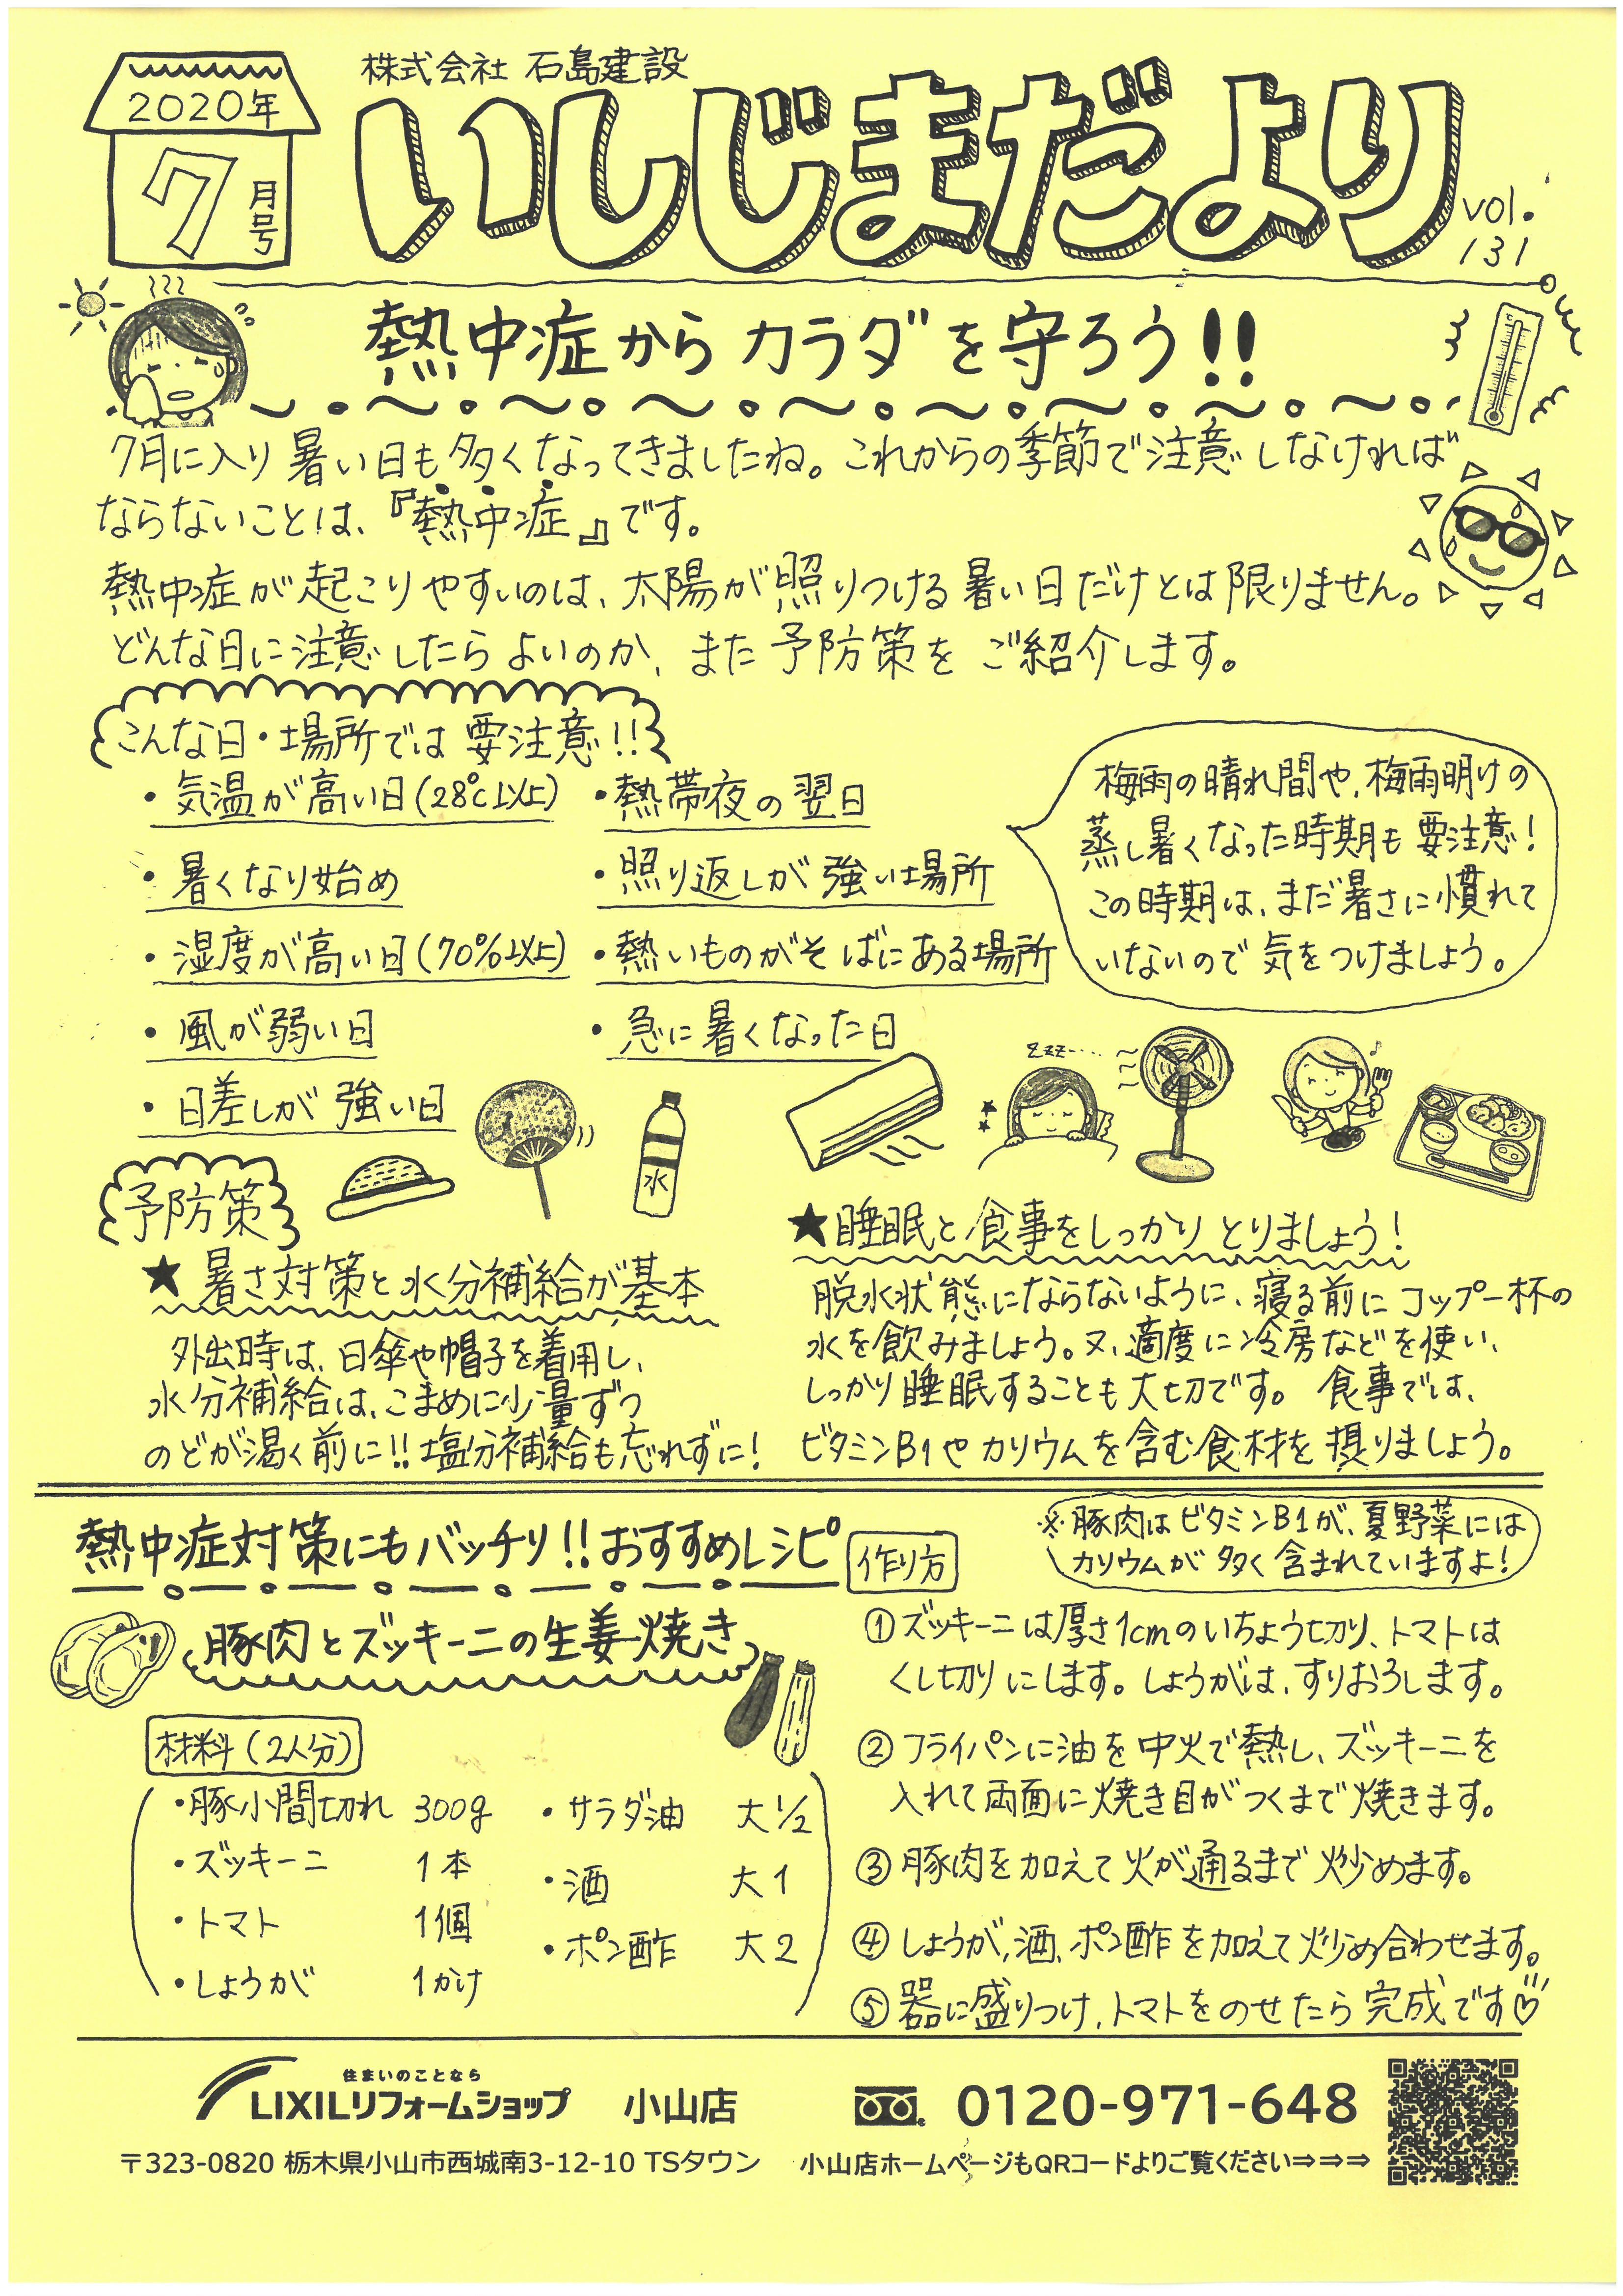 2020年
7月号
株式会社 石島建設
いしじまだより
vol.
131
熱中症からカラダを守ろう!!
7月に入り暑い日も多くなってきましたね。これからの季節で注意しなければ
ならないことは、『熱中症』です。
熱中症が起こりやすいのは、太陽が照りつける暑い日だけとは限りません。
どんな日に注意したらよいのか、また予防策をご紹介します。
こんな日・場所では要注意!!
・気温が高い日(28℃以上)
・暑くなり始め
・湿度が高い日(70%以上)
・風が弱い日
・日差しが強い日
・熱帯夜の翌日
・照り返しが強い場所
・熱いものがそばにある場所
・急に暑くなった日
梅雨の晴れ間や、梅雨明けの
蒸し暑くなった時期も要注意!
この時期は、まだ暑さに慣れて
いないので気をつけましょう。
水
zzz....
予防策
★暑さ対策と水分補給が基本
外出時は、日傘や帽子を着用し、
水分補給は、こまめに少量ずつ
のどが渇く前に!!塩分補給も忘れずに!
★睡眠と食事をしっかりとりましょう!
脱水状態にならないように、寝る前にコップ一杯の
水を飲みましょう。又、適度に冷房などを使い、
しっかり睡眠することも大切です。食事では、
ビタミンB1やカリウムを含む食材を摂りましょう。
熱中症対策にもバッチリ!!おすすめレシピ
豚肉とズッキーニの生姜焼き
材料(2人分)
・豚小間切れ 300g
・ズッキーニ 1本
・トマト 1個
・しょうが 1かけ
・サラダ油 大1/2
・酒 大1
・ポン酢 大2
作り方
※豚肉はビタミンB1が、夏野菜には
カリウムが多く含まれていますよ!
①ズッキーニは厚さ1cmのいちょう切り、トマトは
くし切りにします。しょうがは、すりおろします。
②フライパンに油を中火で熱し、ズッキーニを
入れて両面に焼き目がつくまで焼きます。
③豚肉を加えて火が通るまで炒めます。
④しょうが、酒、ポン酢を加えて炒め合わせます。
⑤器に盛りつけ、トマトをのせたら完成です♡
住まいのことなら
LIXILリフォームショップ 小山店
0120-971-648
〒323-0820 栃木県小山市西城南3-12-10 TSタウン
小山店ホームページもQRコードよりご覧ください⇒⇒⇒